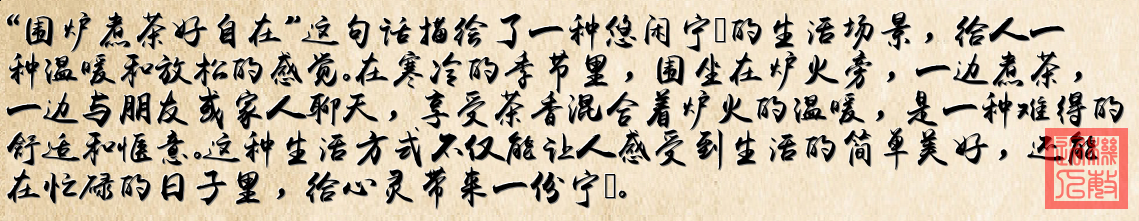 “围炉煮茶好自在”这句话描绘了一种悠闲宁的生活场景，给人一
种温暖和放松的感觉。在寒冷的季节里，围坐在炉火旁，一边煮茶，
一边与朋友或家人聊天，享受茶香混合着炉火的温暖，是一种难得的
舒适和惬意。这种生活方式不仅能让人感受到生活的简单美好，还能
在忙碌的日子里，给心灵带来一份宁。